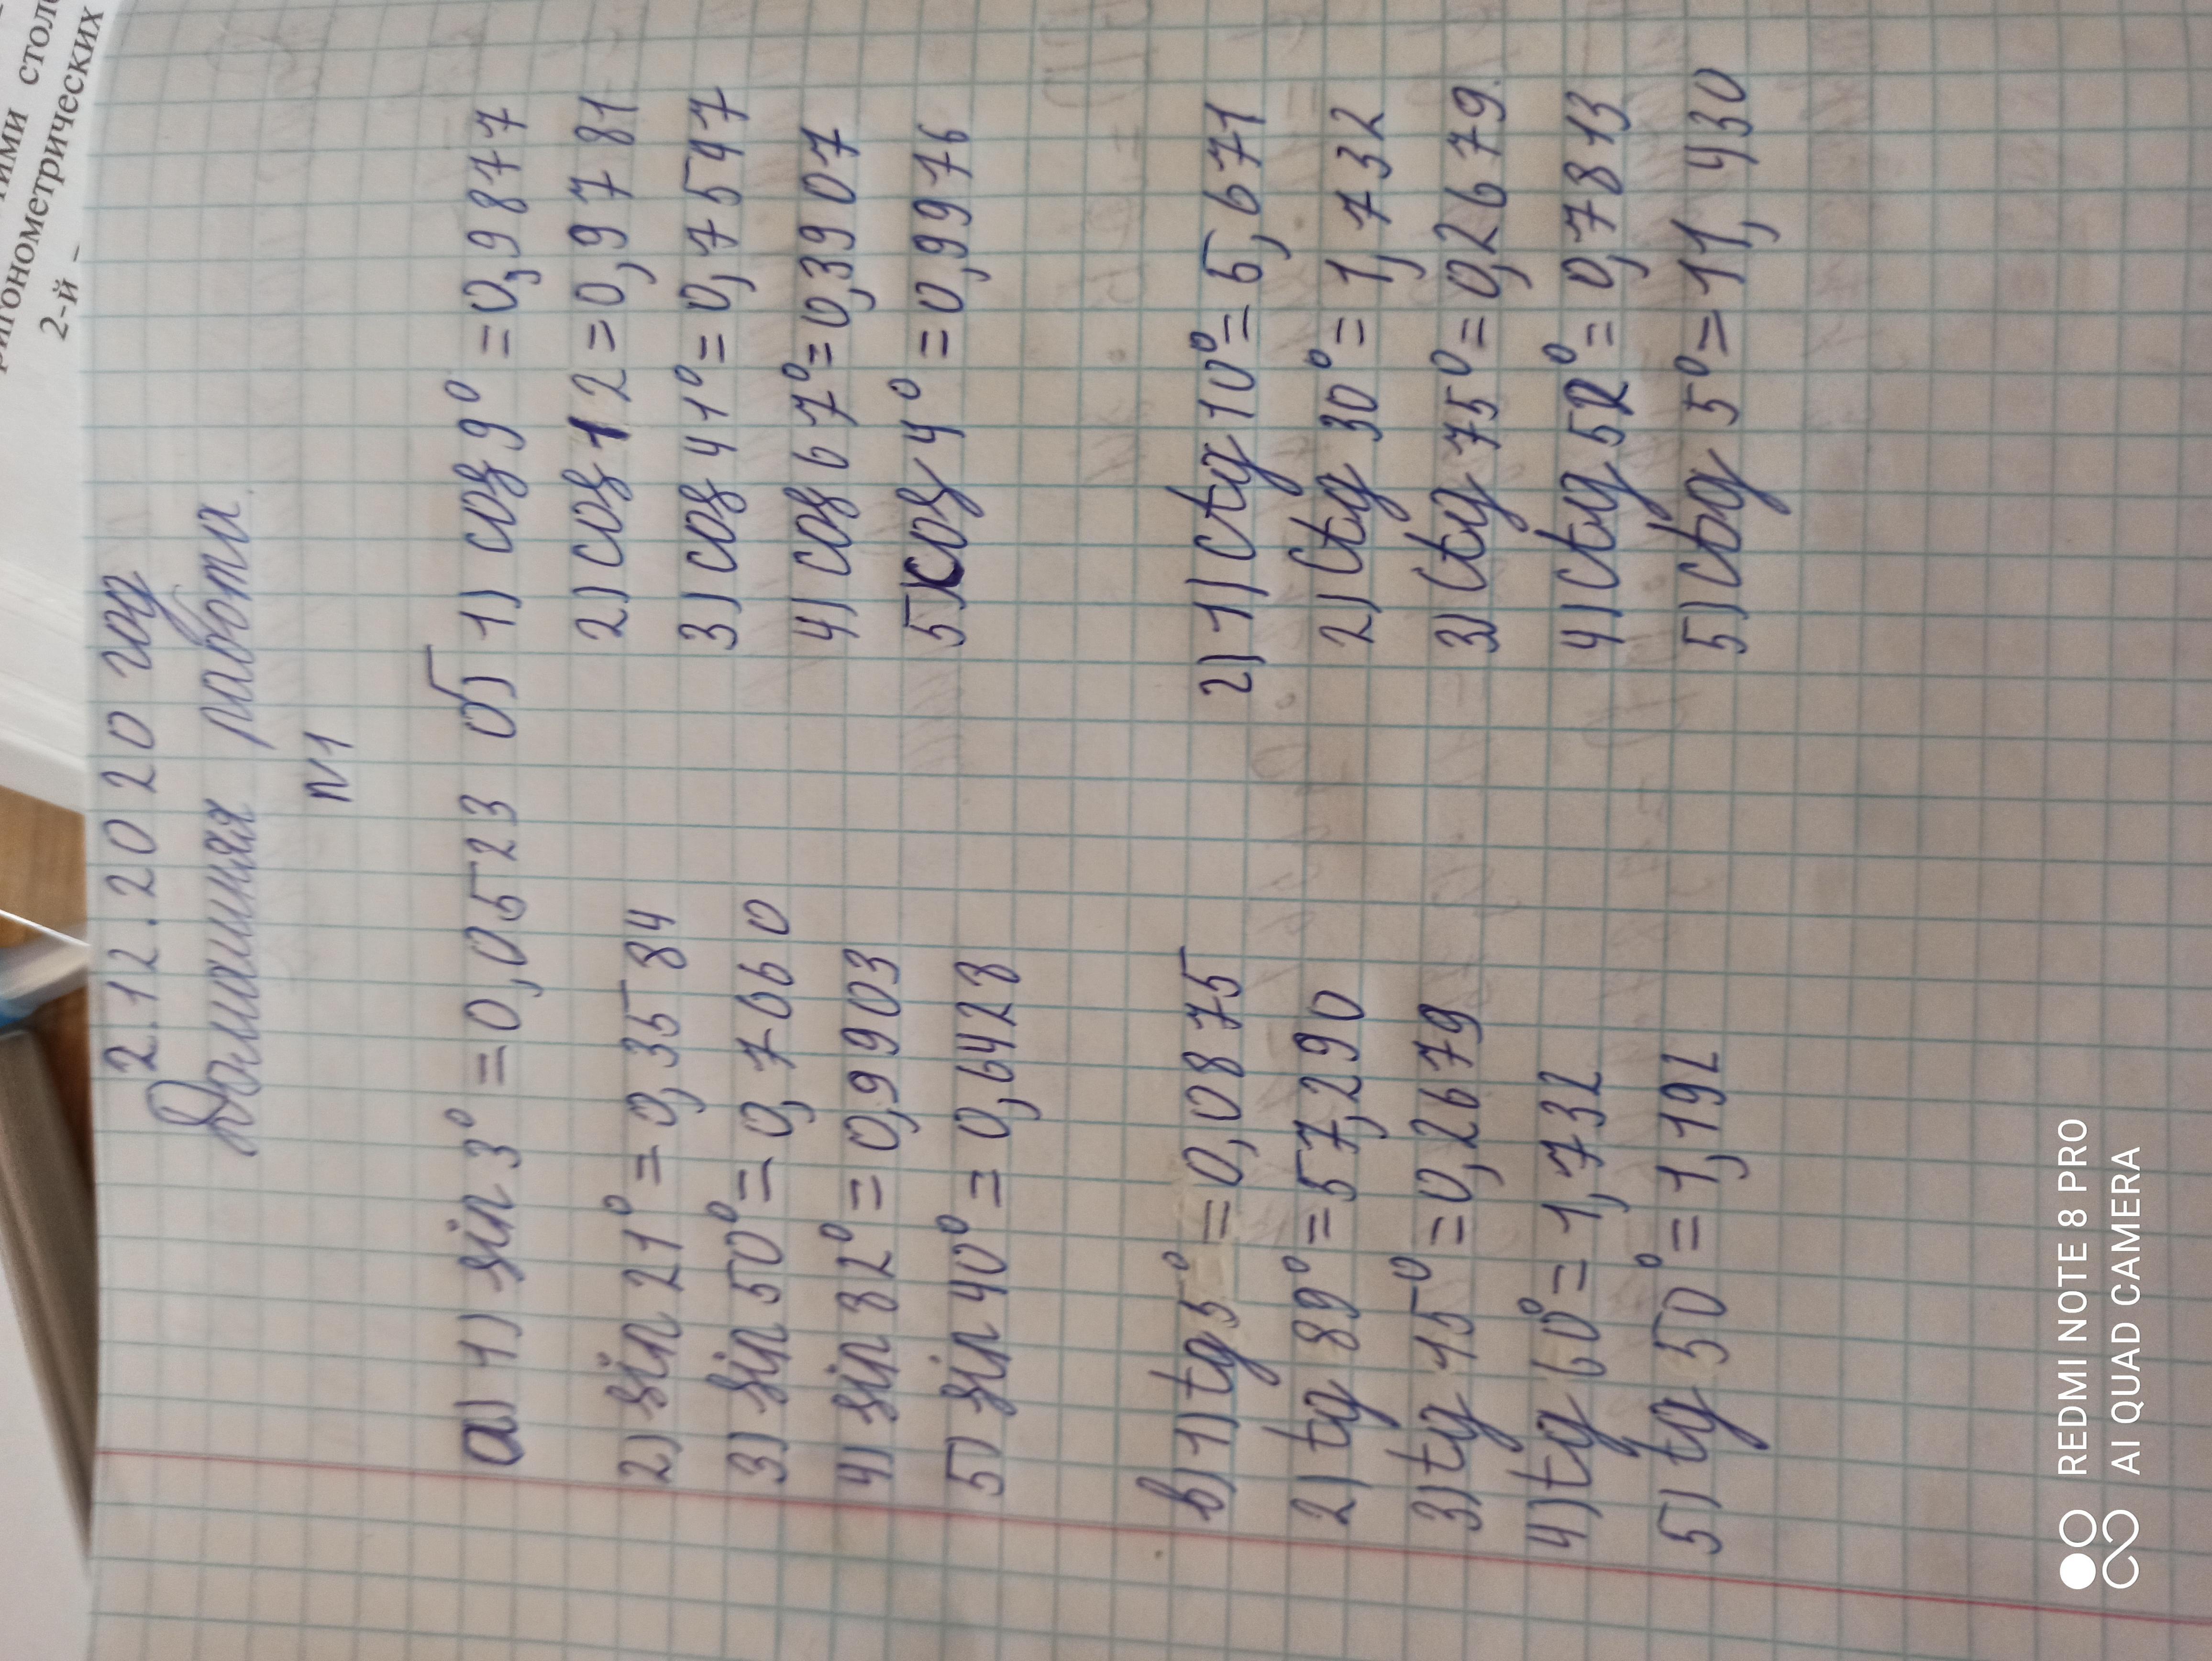 тими столб
ригонометрических
2-й –
2.12.2020 год
Домашняя работа.
N1
а) 1) sin 3° = 0,0523 б) 1) cos 9° = 0,9877
2) sin 21° = 0,3584 2) cos 12 = 0,9781
3) sin 50° = 0,7660 3) cos 41° = 0,7547
4) sin 82° = 0,9903 4) cos 67° = 0,3907
5) sin 40° = 0,6428 5) cos 4° = 0,9976
в) 1) tg 5° = 0,0875 г) 1) ctg 10° = 5,671
2) tg 89° = 57,290 2) ctg 30° = 1,732
3) tg 15° = 0,2679 3) ctg 75° = 0,2679.
4) tg 60° = 1,732 4) ctg 52° = 0,7813
5) tg 50° = 1,192 5) ctg 5° = 11,430
REDMI NOTE 8 PRO
AI QUAD CAMERA